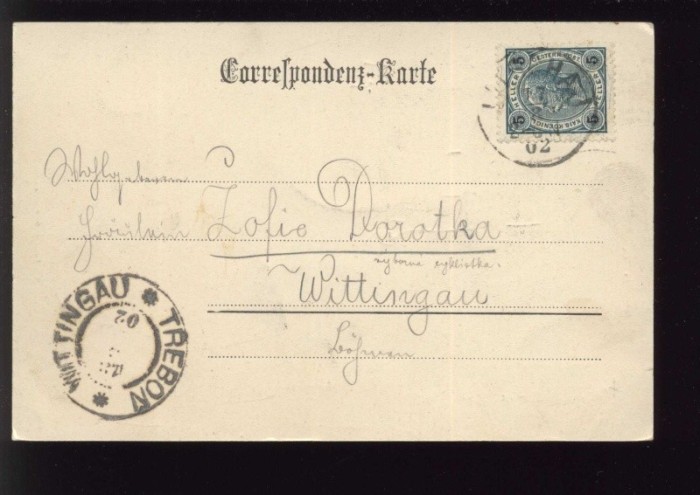 Correspondenz-Karte
5 5
HELLER HELLER
5 5
02
Wohlgeboren
Fräulein Zofie Dorotka
výborná cyklistka.
Wittingau
Böhmen
WITTINGAU * TREBON *
02